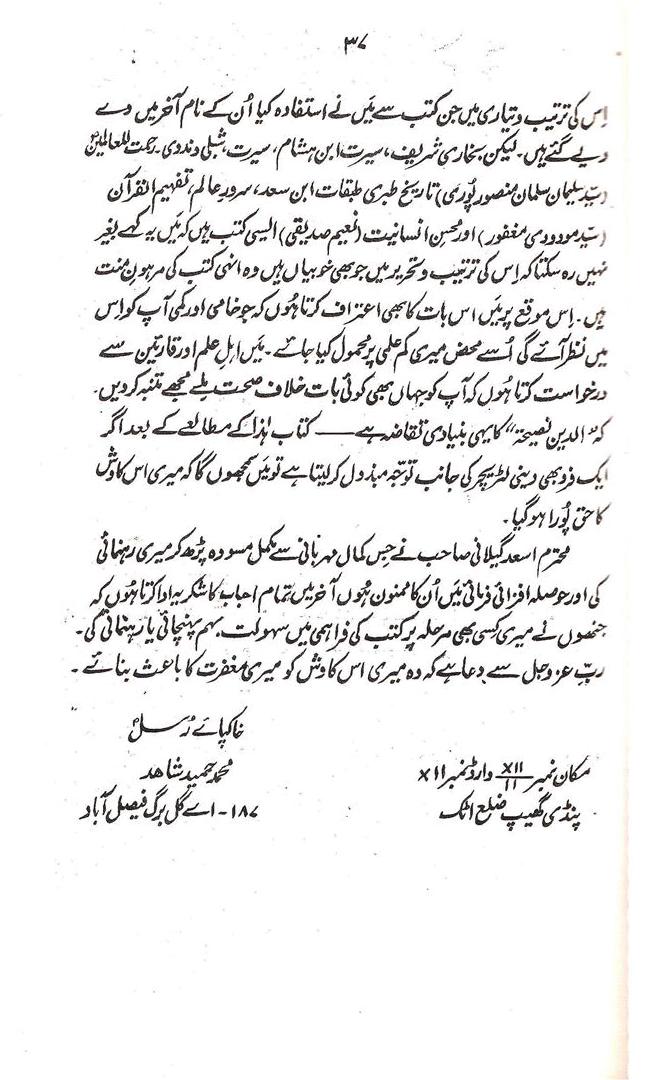 ۳۷
اِس کی ترتیب و تیاری میں جن کتب سے مَیں نے استفادہ کیا اُن کے نام آخر میں دے
دیے گئے ہیں۔ لیکن بخاری شریف، سیرت ابن ہشام، سیرت شبلی و ندوی۔ رحمت للعالمینؐ
(سیّد سلیمان سلمان منصور پُوری) تاریخ طبری طبقات ابن سعد، سرورِ عالم، تفہیم القرآن
(سیّد مودودی مغفور) اور محسنِ انسانیت (نعیم صدیقی) ایسی کتب ہیں کہ مَیں یہ کہے بغیر
نہیں رہ سکتا کہ اِس کی ترتیب و تحریر میں جو بھی خوبیاں ہیں وہ انہی کتب کی مرہونِ منت
ہیں۔ اِس موقع پر مَیں اس بات کا بھی اعتراف کرتا ہُوں کہ جو خامی اور کمی آپ کو اِس
میں نظر آئے گی اُسے محض میری کم علمی پر محمول کیا جائے۔ مَیں اہلِ علم اور قارئین سے
درخواست کرتا ہُوں کہ آپ کو جہاں بھی کوئی بات خلاف صحت ملے مجھے متنبہ کر دیں۔
کہ "الدین نصیحۃ" کا یہی بنیادی تقاضہ ہے —— کتاب ہٰذا کے مطالعے کے بعد اگر
ایک فرد بھی دینی لٹریچر کی جانب توجّہ مبذول کر لیتا ہے تو مَیں سمجھوں گا کہ میری اس کاوش
کا حق پُورا ہو گیا۔
محترم اسعد گیلانی صاحب نے جس کمال مہربانی سے مکمل مسودہ پڑھ کر میری رہنمائی
کی اور حوصلہ افزائی فرمائی مَیں اُن کا ممنون ہُوں آخر میں تمام احباب کا شکریہ ادا کرتا ہُوں کہ
جنھوں نے میری کسی بھی مرحلہ پر کتب کی فراہمی میں سہولت بہم پہنچائی یا رہنمائی کی۔
ربِّ عزوجل سے دعا ہے کہ وہ میری اس کاوش کو میری مغفرت کا باعث بنائے۔
خاکپائے رُسلؐ
محمد حمید شاہد
۱۸۷-اے گل برگ فیصل آباد
مکان نمبر XII/11 وارڈ نمبر XII
پنڈی گھیپ ضلع اٹک